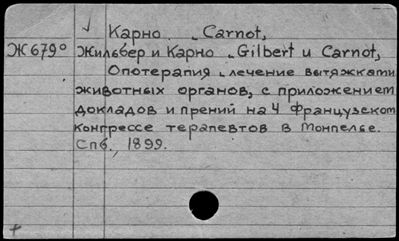 Карно. „Carnot„
Ж679° Жильбер и Карно „Gilbert и Carnot„
Опотерапия „лечение вытяжками
животных органов„ с приложением
докладов и прений на 4 Французском
конгрессе терапевтов в Монпелье.
Спб., 1899.